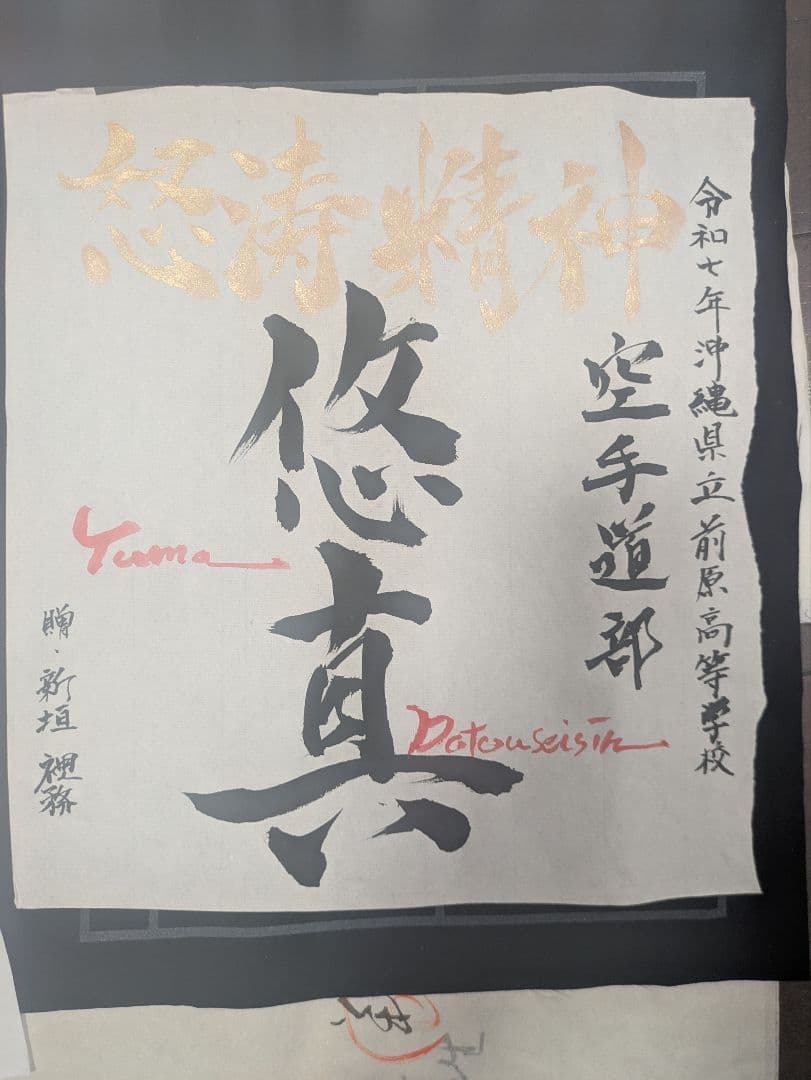 怒涛精神
令和七年沖縄県立前原高等学校
空手道部
悠真
Yuma
Dotouseisin
贈・新垣